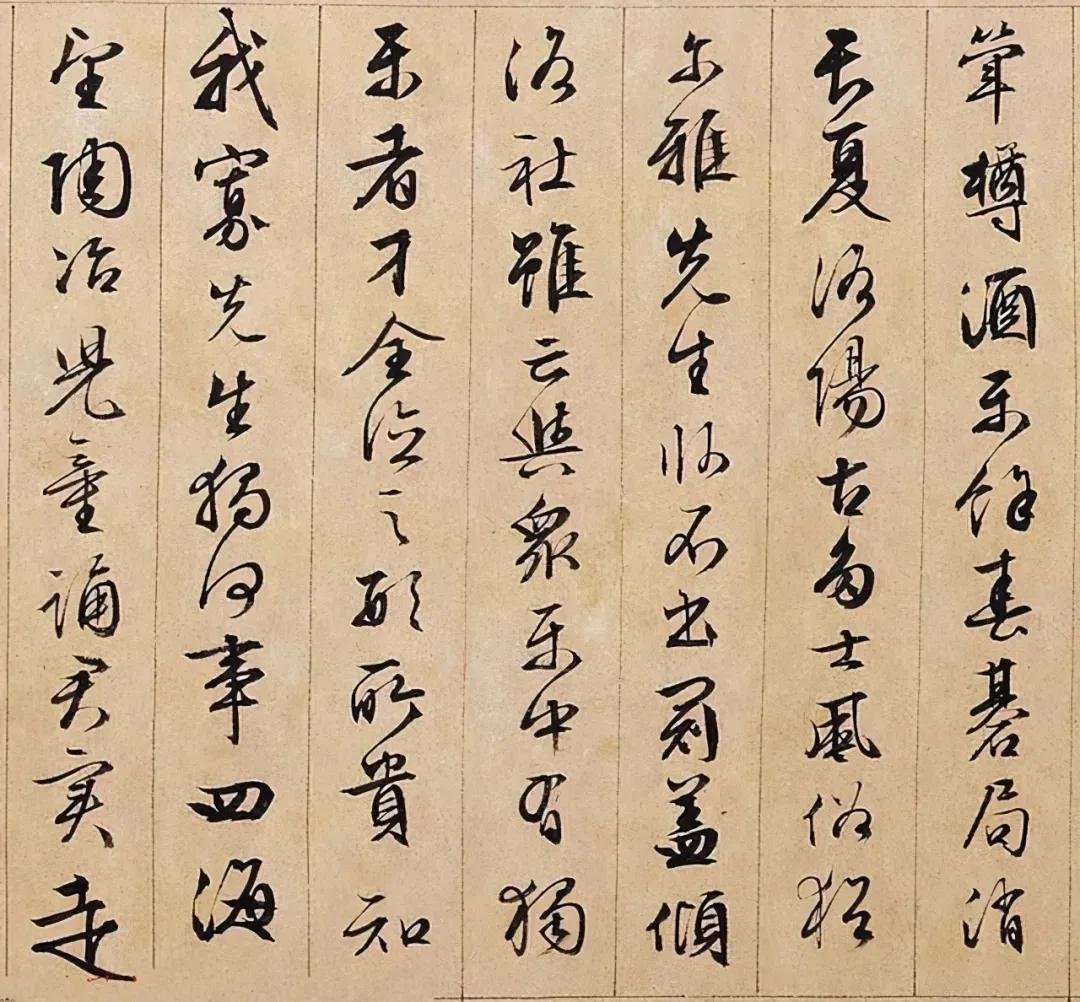 斝樽酒樂餘春碁局消
長夏洛陽古多士風俗猶
尔雅先生卧不出冠盖傾
洛社雖云與衆樂中有獨
樂者才全德不形所貴知
我寡先生獨何事四海
望陶冶兒童誦君實走